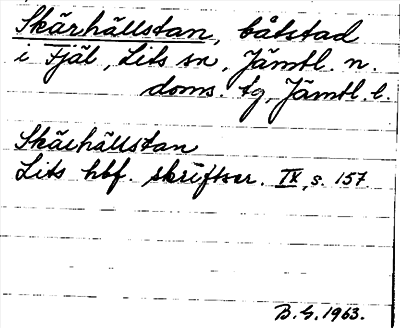 Skärhällstan, båtstad
i Fjäl, Lits sn, Jämtl. n.
doms. tg, Jämtl. l.
Skärhällstan
Lits hbf. skriftser. IX, s. 157
B. G. 1963.